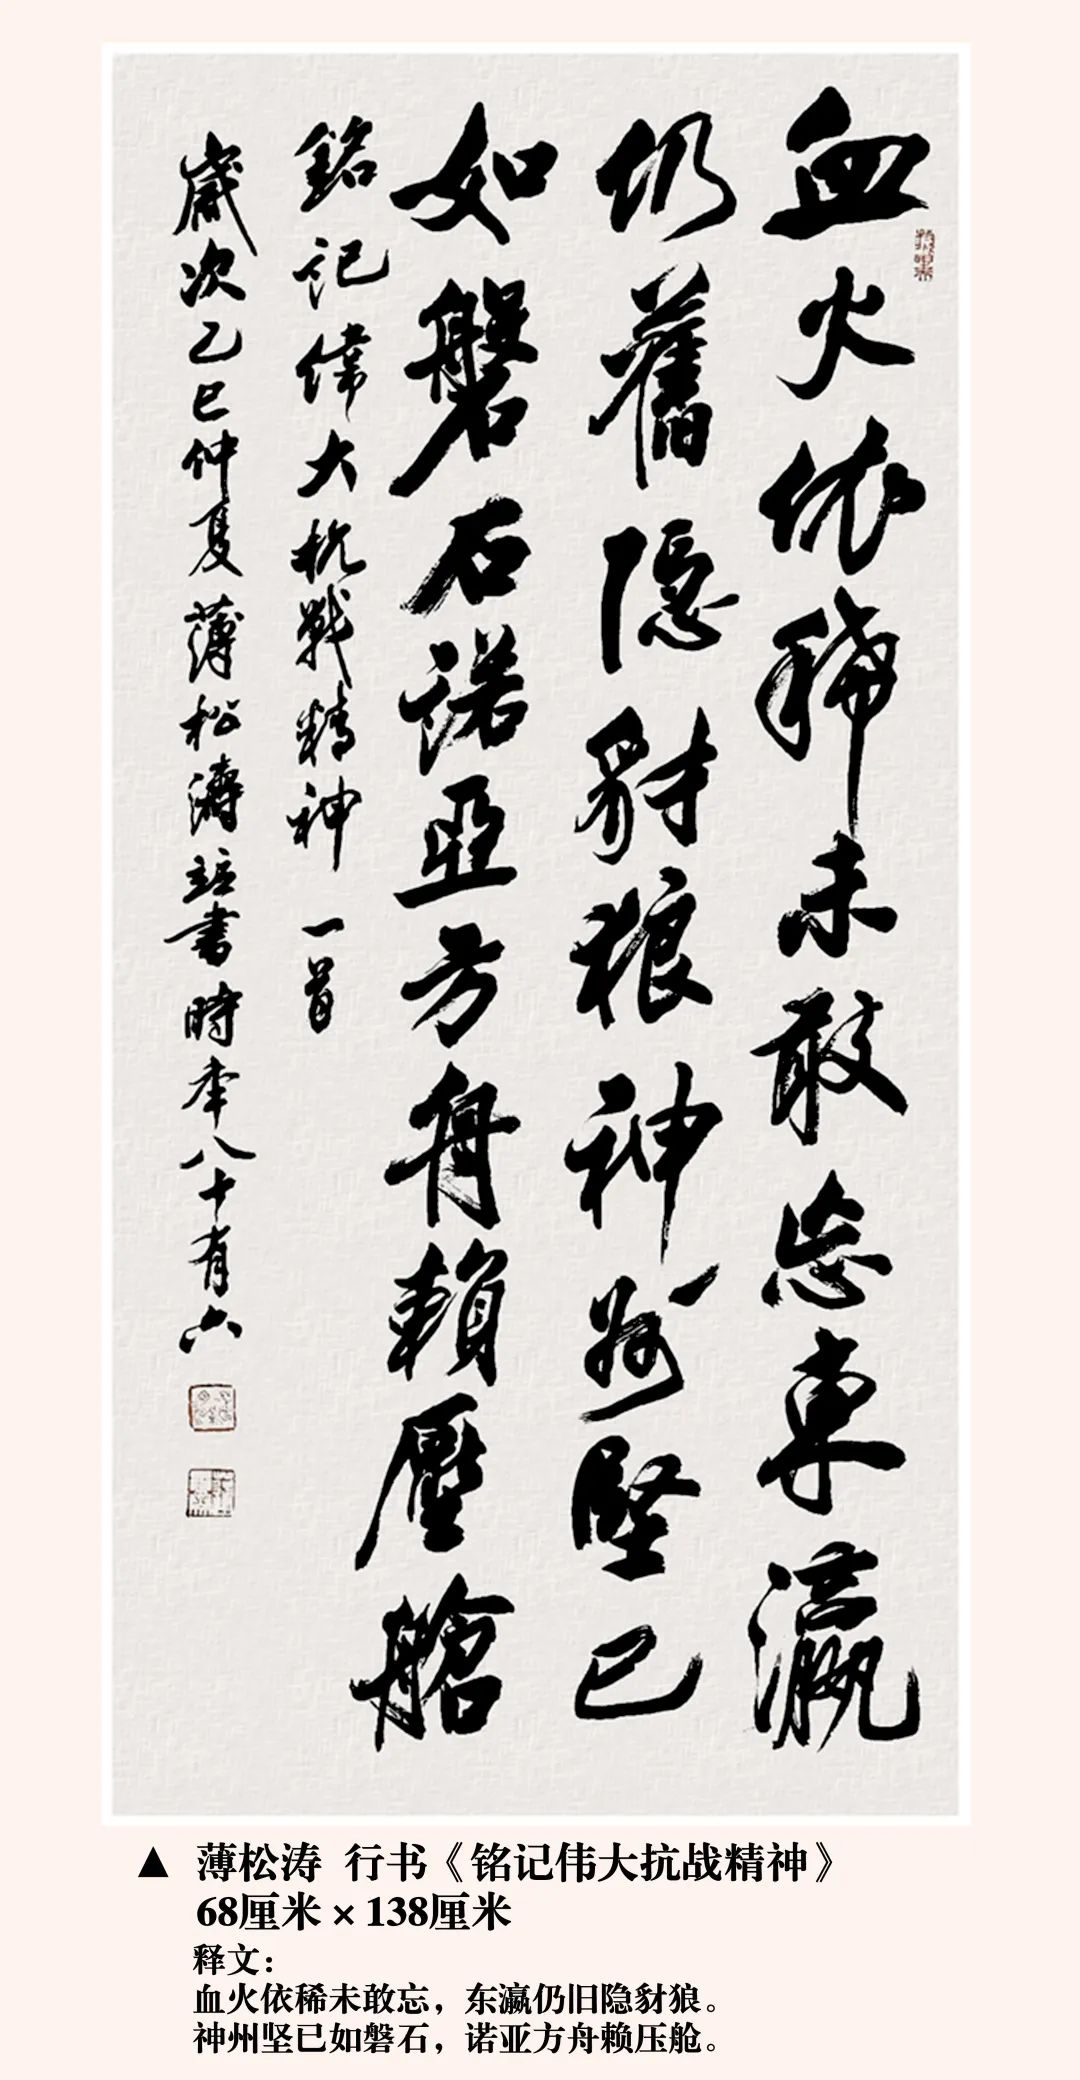 血火依稀未敢忘東瀛
仍舊隱豺狼神州堅已
如磐石諾亞方舟賴壓艙
銘記偉大抗戰精神 一首
歲次乙巳仲夏薄松濤並書時年八十有六
▲ 薄松涛 行书《铭记伟大抗战精神》
68厘米×138厘米
释文：
血火依稀未敢忘，东瀛仍旧隐豺狼。
神州坚已如磐石，诺亚方舟赖压舱。